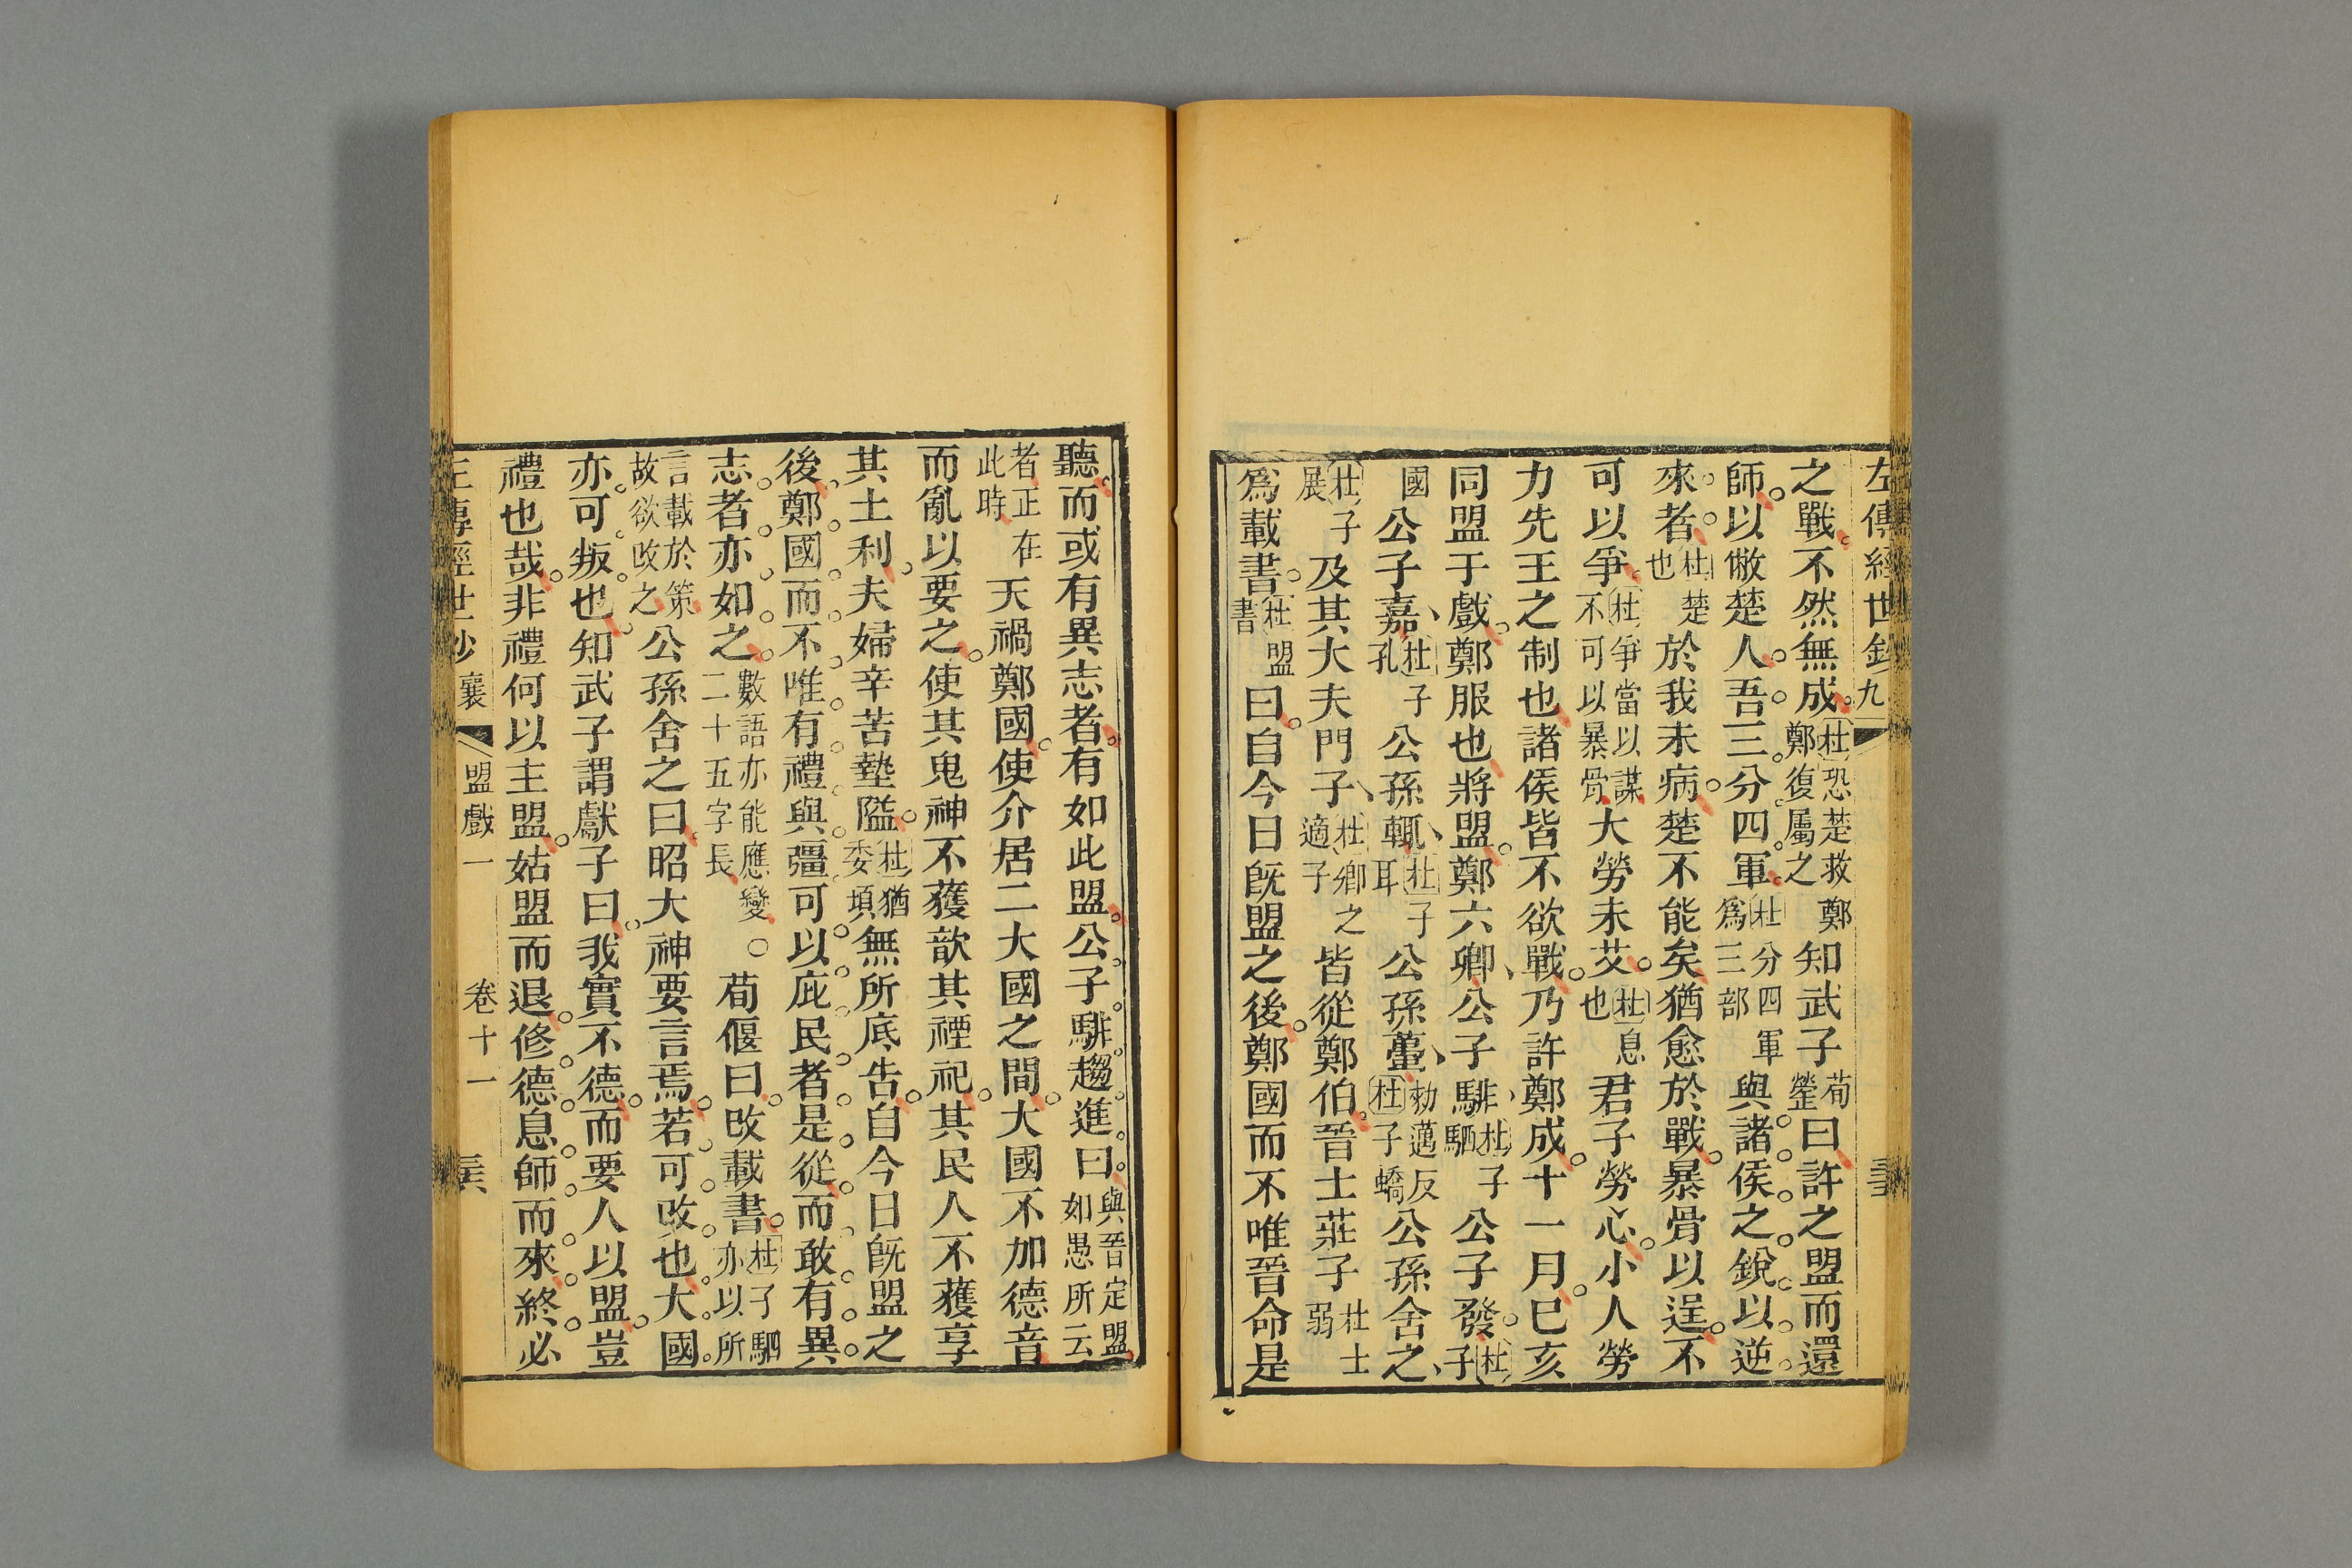 左傳經世鈔 九
之戰不然無成杜恐楚救鄭鄭復屬之知武子荀罃曰許之盟而還
師以敝楚人吾三分四軍杜分四軍爲三部與諸侯之銳以逆
來者杜楚也於我未病楚不能矣猶愈於戰暴骨以逞不
可以爭杜爭當以謀不可以暴骨大勞未艾杜息也君子勞心小人勞
力先王之制也諸侯皆不欲戰乃許鄭成十一月己亥
同盟于戲鄭服也將盟鄭六卿公子騑杜子駟公子發杜子
國公子嘉杜子孔公孫輒杜子耳公孫蠆勑邁反杜子蟜公孫舍之
杜子展及其大夫門子杜卿之適子皆從鄭伯晉士莊子杜士弱
爲載書杜盟書曰自今日旣盟之後鄭國而不唯晉命是
聽而或有異志者有如此盟公子騑趨進曰與晉定盟如愚所云
者正在此時天禍鄭國使介居二大國之間大國不加德音
而亂以要之使其鬼神不獲歆其禋祀其民人不獲享
其土利夫婦辛苦墊隘杜猶委頓無所底告自今日旣盟之
後鄭國而不唯有禮與彊可以庇民者是從而敢有異
志者亦如之數語亦能應變二十五字長○荀偃曰改載書杜子駟亦以所
言載於策故欲改之公孫舍之曰昭大神要言焉若可改也大國
亦可叛也知武子謂獻子曰我實不德而要人以盟豈
禮也哉非禮何以主盟姑盟而退修德息師而來終必
左傳經世鈔 襄 盟戲一 卷十一